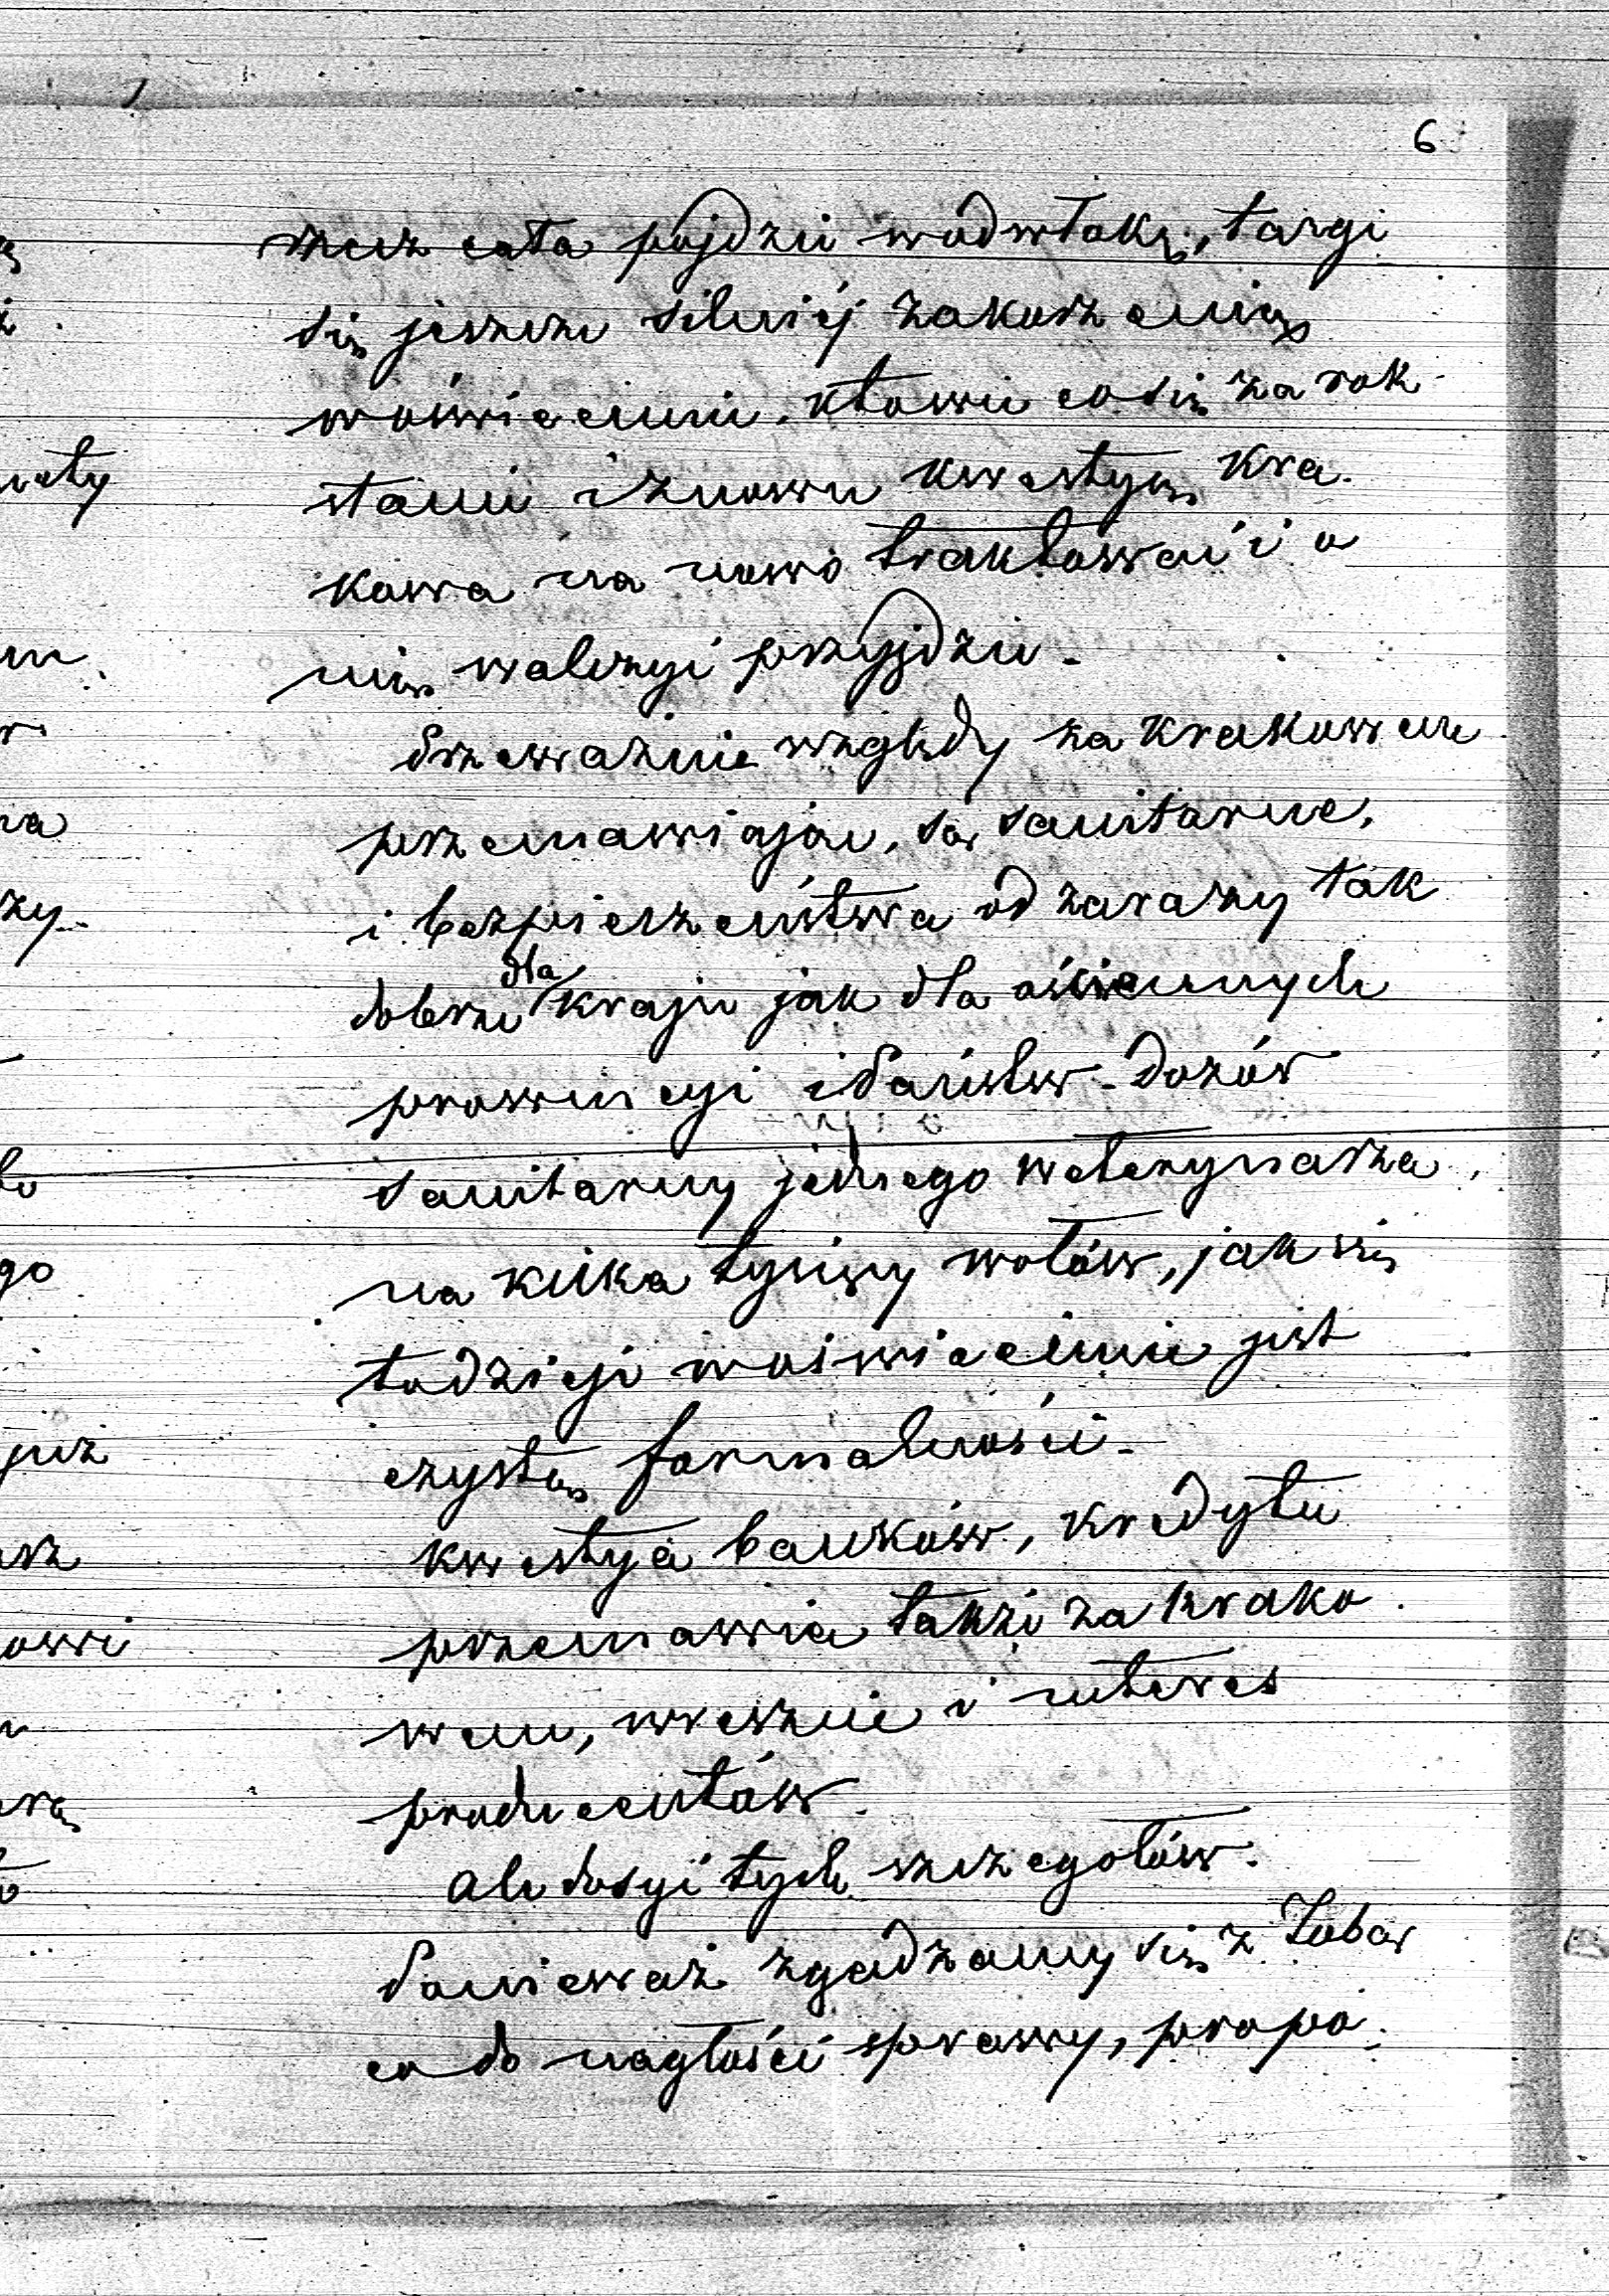 6
rzecz cała pójdzie wodwłokę, targi
się jeszcze silniéj zakorzenią
woświęcimie, któwie co się za rok
stanie i znowu kwestyę Kra.
kowa na nowo traktować i o
nią walczyć przyjdzie.
Przeważnie względy za Krakowem
przemawiające, są sanitarne,
i bezpieczeństwa od zarazy tak
dobrze dla kraju jak dla ościennych
prowincyi i Państw. Dozór
sanitarny jednego weterynarza
na kilka tysięcy wołów, jak się
to dzieje woświęcimie jest
czystą formalności.
Kwestya banków, kredytu
przemawia także za Krako.
wem, wreszcie i interes
producentów.
Ale dosyć tych szczegółów.
Ponieważ zgadzamy się z Izbą
co do nagłości sprawy, propo.